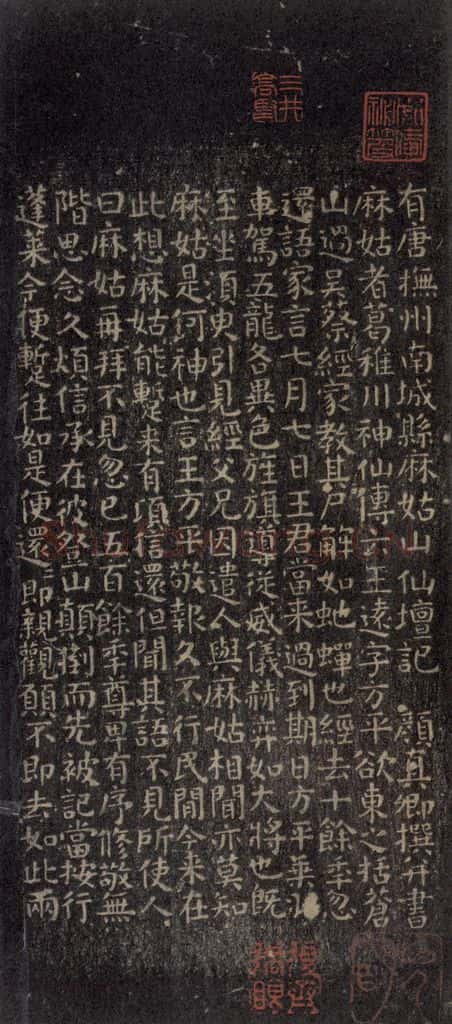 有唐撫州南城縣麻姑山仙壇記 顏真卿撰并書
麻姑者葛稚川神仙傳云王遠字方平欲東之括蒼
山過吳蔡經家教其尸解如虵蟬也經去十餘季忽
還語家言七月七日王君當来過到期日方平乗羽
車駕五龍各異色旌旗導從威儀赫弈如大將也旣
至坐須臾引見經父兄因遣人與麻姑相聞亦莫知
麻姑是何神也言王方平敬報久不行民間今来在
此想麻姑能蹔来有頃信還但聞其語不見所使人
曰麻姑再拜不見忽已五百餘季尊卑有序修敬無
階思念久煩信承在彼登山顛倒而先被記當按行
蓬萊今便蹔往如是便還還即親觀願不即去如此兩
三井
高堅